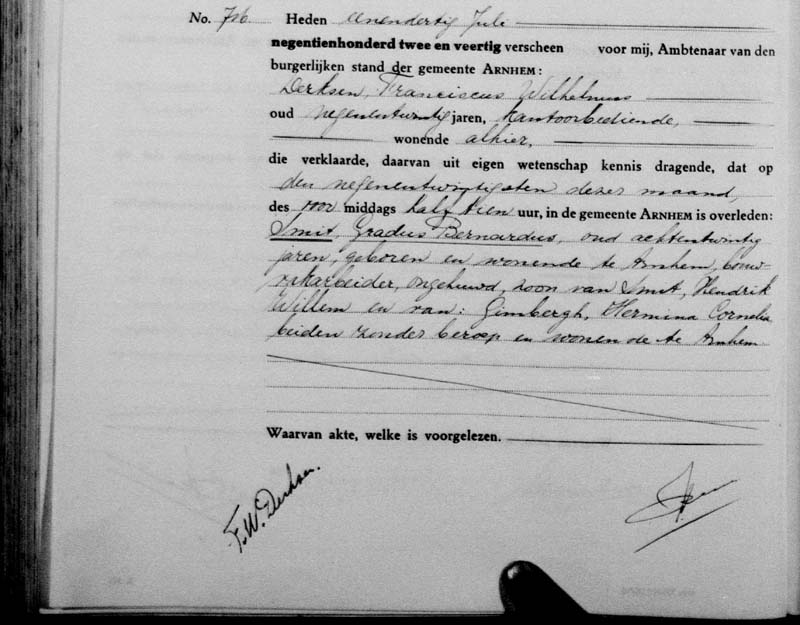 No. 726 Heden eenendertig Juli
negentienhonderd twee en veertig verscheen voor mij, Ambtenaar van den
burgerlijken stand der gemeente ARNHEM:
Derksen, Franciscus Wilhelmus
oud negenentwintig jaren, kantoorbediende,
wonende alhier,
die verklaarde, daarvan uit eigen wetenschap kennis dragende, dat op
den negenentwintigsten dezer maand,
des voor middags half tien uur, in de gemeente ARNHEM is overleden:
Smit, Gradus Bernardus, oud achtentwintig
jaren, geboren en wonende te Arnhem, bouw-
vakarbeider, ongehuwd, zoon van Smit, Hendrik
Willem en van: Gimbergh, Hermina Cornelia
beiden zonder beroep en wonende te Arnhem
Waarvan akte, welke is voorgelezen.
F.W. Derksen.